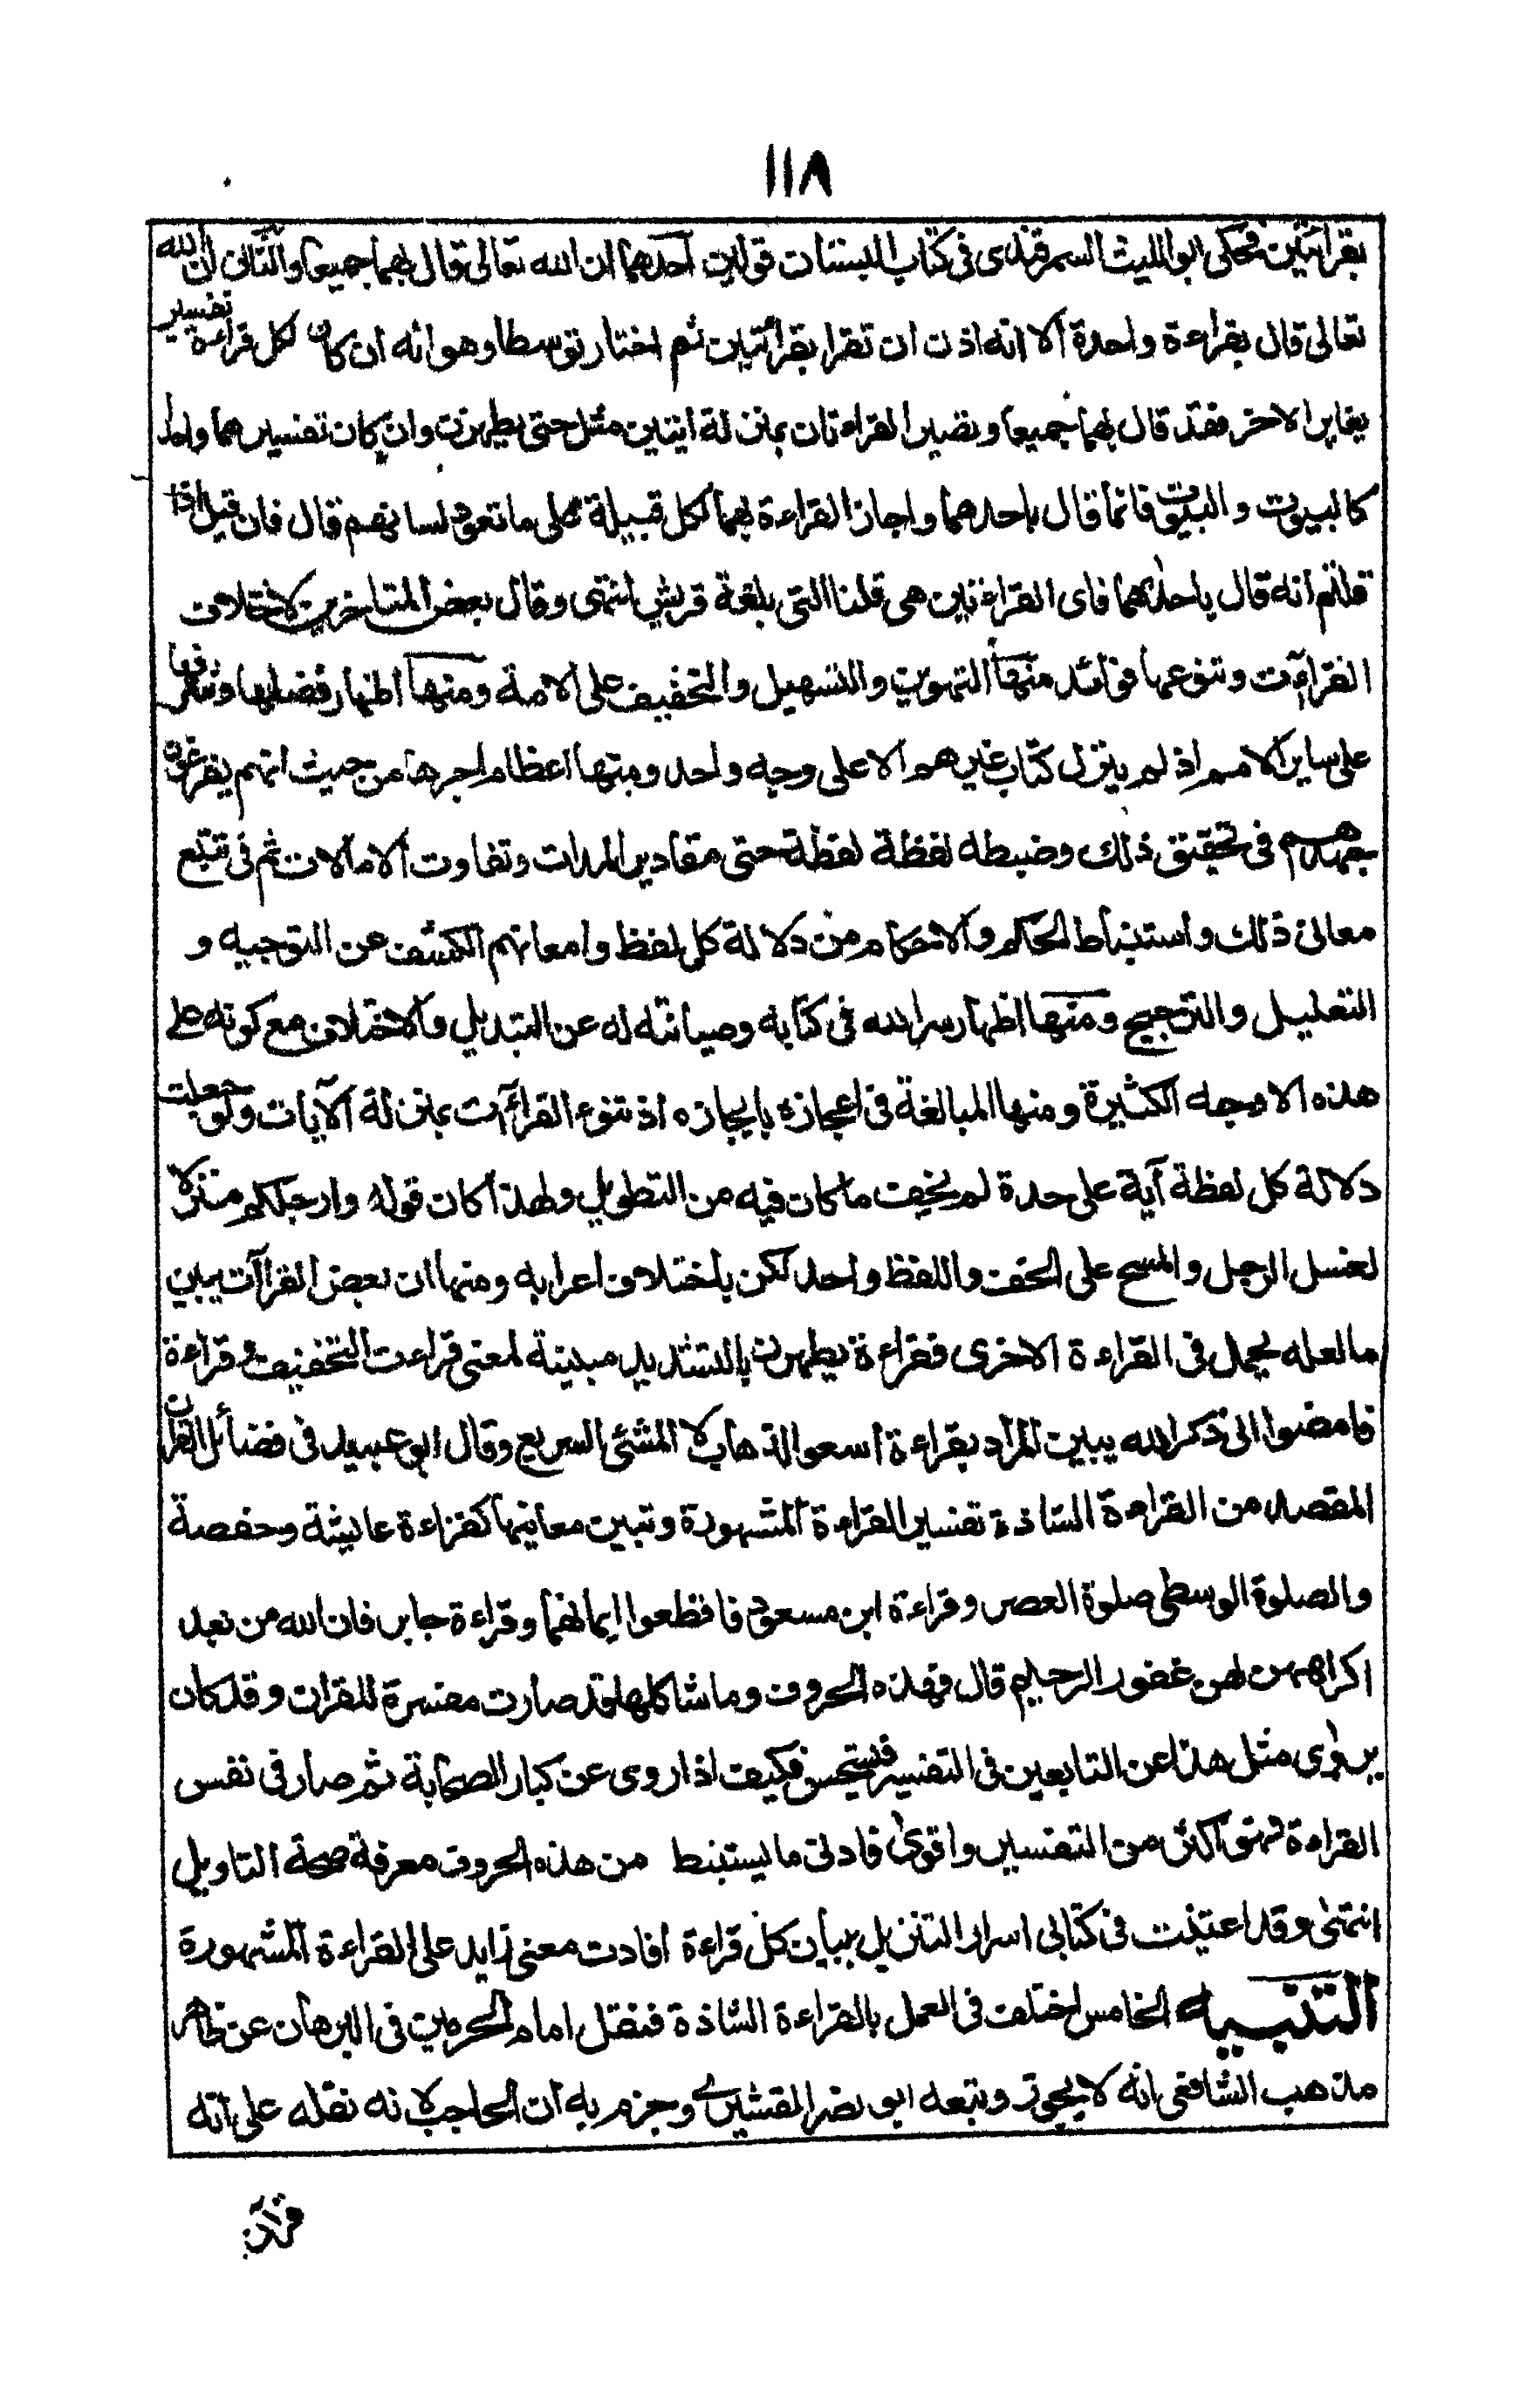 ١١٨
بقرائتين فحكى ابو الليث السمرقندى فى كتاب البستان قولين احدهما ان الله تعالى قال بهما جميعا والثانى ان الله
تعالى قال بقراءة واحدة الا انه اذن ان تقرا بقرأتين ثم اختار توسطا وهو انه ان كان لكل قراءة تفسير
يغاير الاخر فقد قال بهما جميعا وتصير القراءتان بمنزلة ايتين مثل حتى يطهرن وان كان تفسيرهما واحد
كالبيوت والبيوت فانما قال باحدهما واجاز القراءة بهما لكل قبيلة على ما تعود لسانهم قال فان قيل اذا
قلتم انه قال باحدهما فاى القراءتين هى قلنا التى بلغة قريش انتهى وقال بعض المتاخرين لاختلاف
القراآت وتنوعها فوائد منها التهوين والتسهيل والتخفيف على الامة ومنها اظهار فضلها وشرفها
على ساير الامم اذ لم ينزل كتاب غيرهم الا على وجه واحد ومنها اعظام اجرها من حيث انهم يفرغون
جهدهم فى تحقيق ذلك وضبطه لفظة لفظة حتى مقادير المدات وتفاوت الامالات ثم فى تتبع
معانى ذلك واستنباط الحكم والاحكام من دلالة كل لفظ وامعانهم الكشف عن التوجيه و
التعليل والترجيح ومنها اظهار سر الله فى كتابه وصيانته له عن التبديل والاختلاف مع كونه على
هذه الاوجه الكثيرة ومنها المبالغة فى اعجازه بايجازه اذ تنوع القراآت بمنزلة الآيات ولو جعلت
دلالة كل لفظة آية على حدة لم يخف ما كان فيه من التطويل ولهذا كان قوله وارجلكم منزلا
لغسل الرجل والمسح على الخف واللفظ واحد لكن باختلاف اعرابه ومنها ان بعض القراآت يبين
مالعله يجمل فى القراءة الاخرى فقراءة يطهرن بالتشديد مبينة لمعنى قراءت التخفيف وقراءة
فامضوا الى ذكر الله يبين المراد بقراءة اسعوا الذهاب لا المشئى السريع وقال ابو عبيد فى فضائل القران
المقصد من القراءة الشاذة تفسير القراءة المشهورة وتبين معانيها كقراءة عايشة وحفصة
والصلوة الوسطى صلوة العصر وقراءة ابن مسعود فاقطعوا ايمانهما وقراءة جابر فان الله من بعد
اكراههن لهن غفور الرحيم قال فهذه الحروف وما شاكلها قد صارت مفسرة للقران وقد كان
يروى مثل هذا عن التابعين فى التفسير فيستحسن فكيف اذا روى عن كبار الصحابة ثم صار فى نفس
القراءة فهو اكثر من التفسير واقوى فادنى ما يستنبط من هذه الحروف معرفة صحة التاويل
انتهى وقد اعتنيت فى كتابى اسرار التنزيل ببيان كل قراءة افادت معنى زايد على القراءة المشهورة
التنبيه الخامس اختلف فى العمل بالقراءة الشاذة فنقل امام الحرمين فى البرهان عن ظاهر
مذهب الشافعى انه لا يجوز وتبعه ابو نصر القشيرى وجزم به ابن الحاجب لانه نقله على انه
قرآن